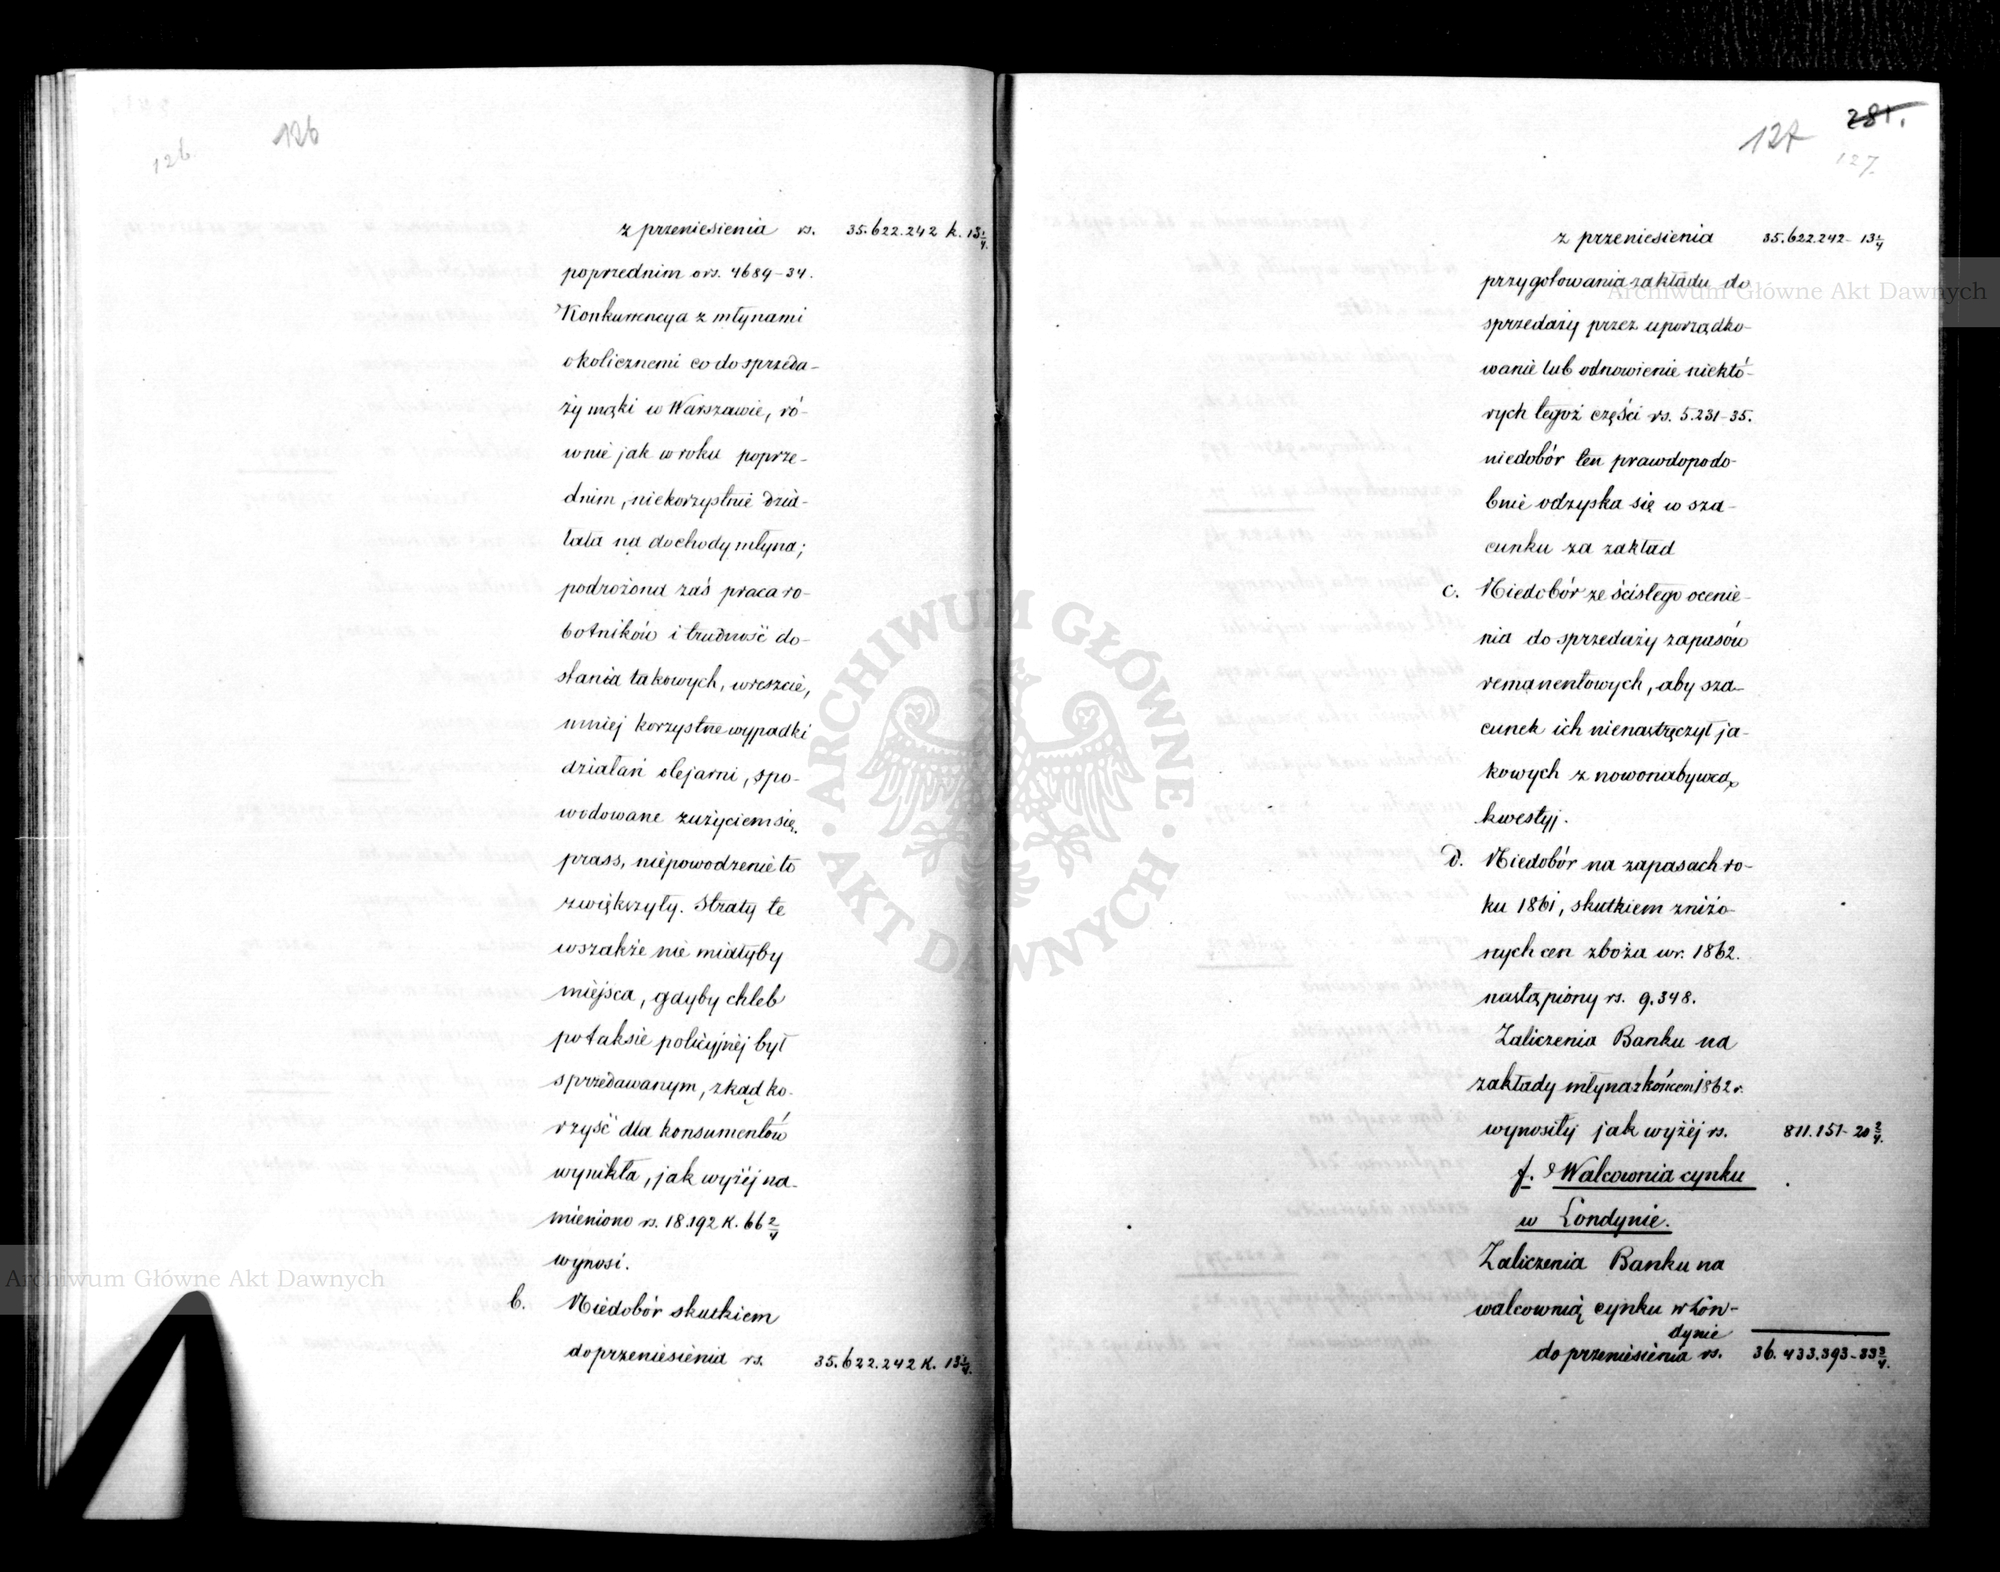 126
126.
z przeniesienia rs. 35.622.242 k. 13 1/4.
poprzednim o rs. 4684-34.
Konkurrencya z młynami
okolicznemi co do sprzeda-
ży mąki w Warszawie, ró-
wnie jak w roku poprze-
dnim, niekorzystnie dzia-
łała na dochody młyna;
podrożona zaś praca ro-
botników i trudność do-
stania takowych, wreszcie,
mniej korzystne wypadki
działań olejarni, spo-
wodowane zużyciem się
prass, niepowodzenie to
zwiększyły. Straty te
wszakże nie miałyby
miejsca, gdyby chleb
po taksie policyjnéj był
sprzedawanym, zkąd ko-
rzyść dla konsumentów
wynikła, jak wyżéj na-
mieniono rs. 18.192 K. 66 2/4
wynosi.
b. Niedobór skutkiem
do przeniesienia rs. 35.622.242 K. 13 1/4.
281.
127
127.
z przeniesienia 35.622.242- 13 1/4
przygotowania zakładu do
sprzedaży przez uporządko-
wanie lub odnowienie niektó-
rych tegoż części rs. 5.231-35.
niedobór ten prawdopodo-
bnie odzyska się w sza-
cunku za zakład
c. Niedobór ze ścisłego ocenie-
nia do sprzedaży zapasów
remanentowych, aby sza-
cunek ich nienastręczył ja-
kowych z nowonabywcą
kwestyj.
d. Niedobór na zapasach ro-
ku 1861, skutkiem zniżo-
nych cen zboża w r. 1862.
nastąpiony rs. 9.348.
Zaliczenia Banku na
zakłady młyna z końcem 1862 r.
wynosiły jak wyżéj rs. 811.151- 20 2/4.
f. Walcownia cynku
w Londynie.
Zaliczenia Banku na
walcownią cynku w Lon-
dynie
do przeniesienia rs. 36.433.393-33 3/4.
Archiwum Główne Akt Dawnych
ARCHIWUM GŁÓWNE · AKT DAWNYCH ·
Archiwum Główne Akt Dawnych